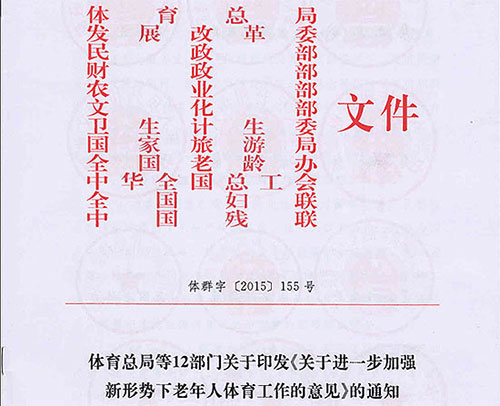 体育总局
发展改革委
民政部
财政部
农业部
文化部
卫生计生委
国家旅游局
全国老龄办
中华全国总工会
全国妇联
中国残联
文件
体群字〔2015〕155 号
体育总局等12部门关于印发《关于进一步加强
新形势下老年人体育工作的意见》的通知